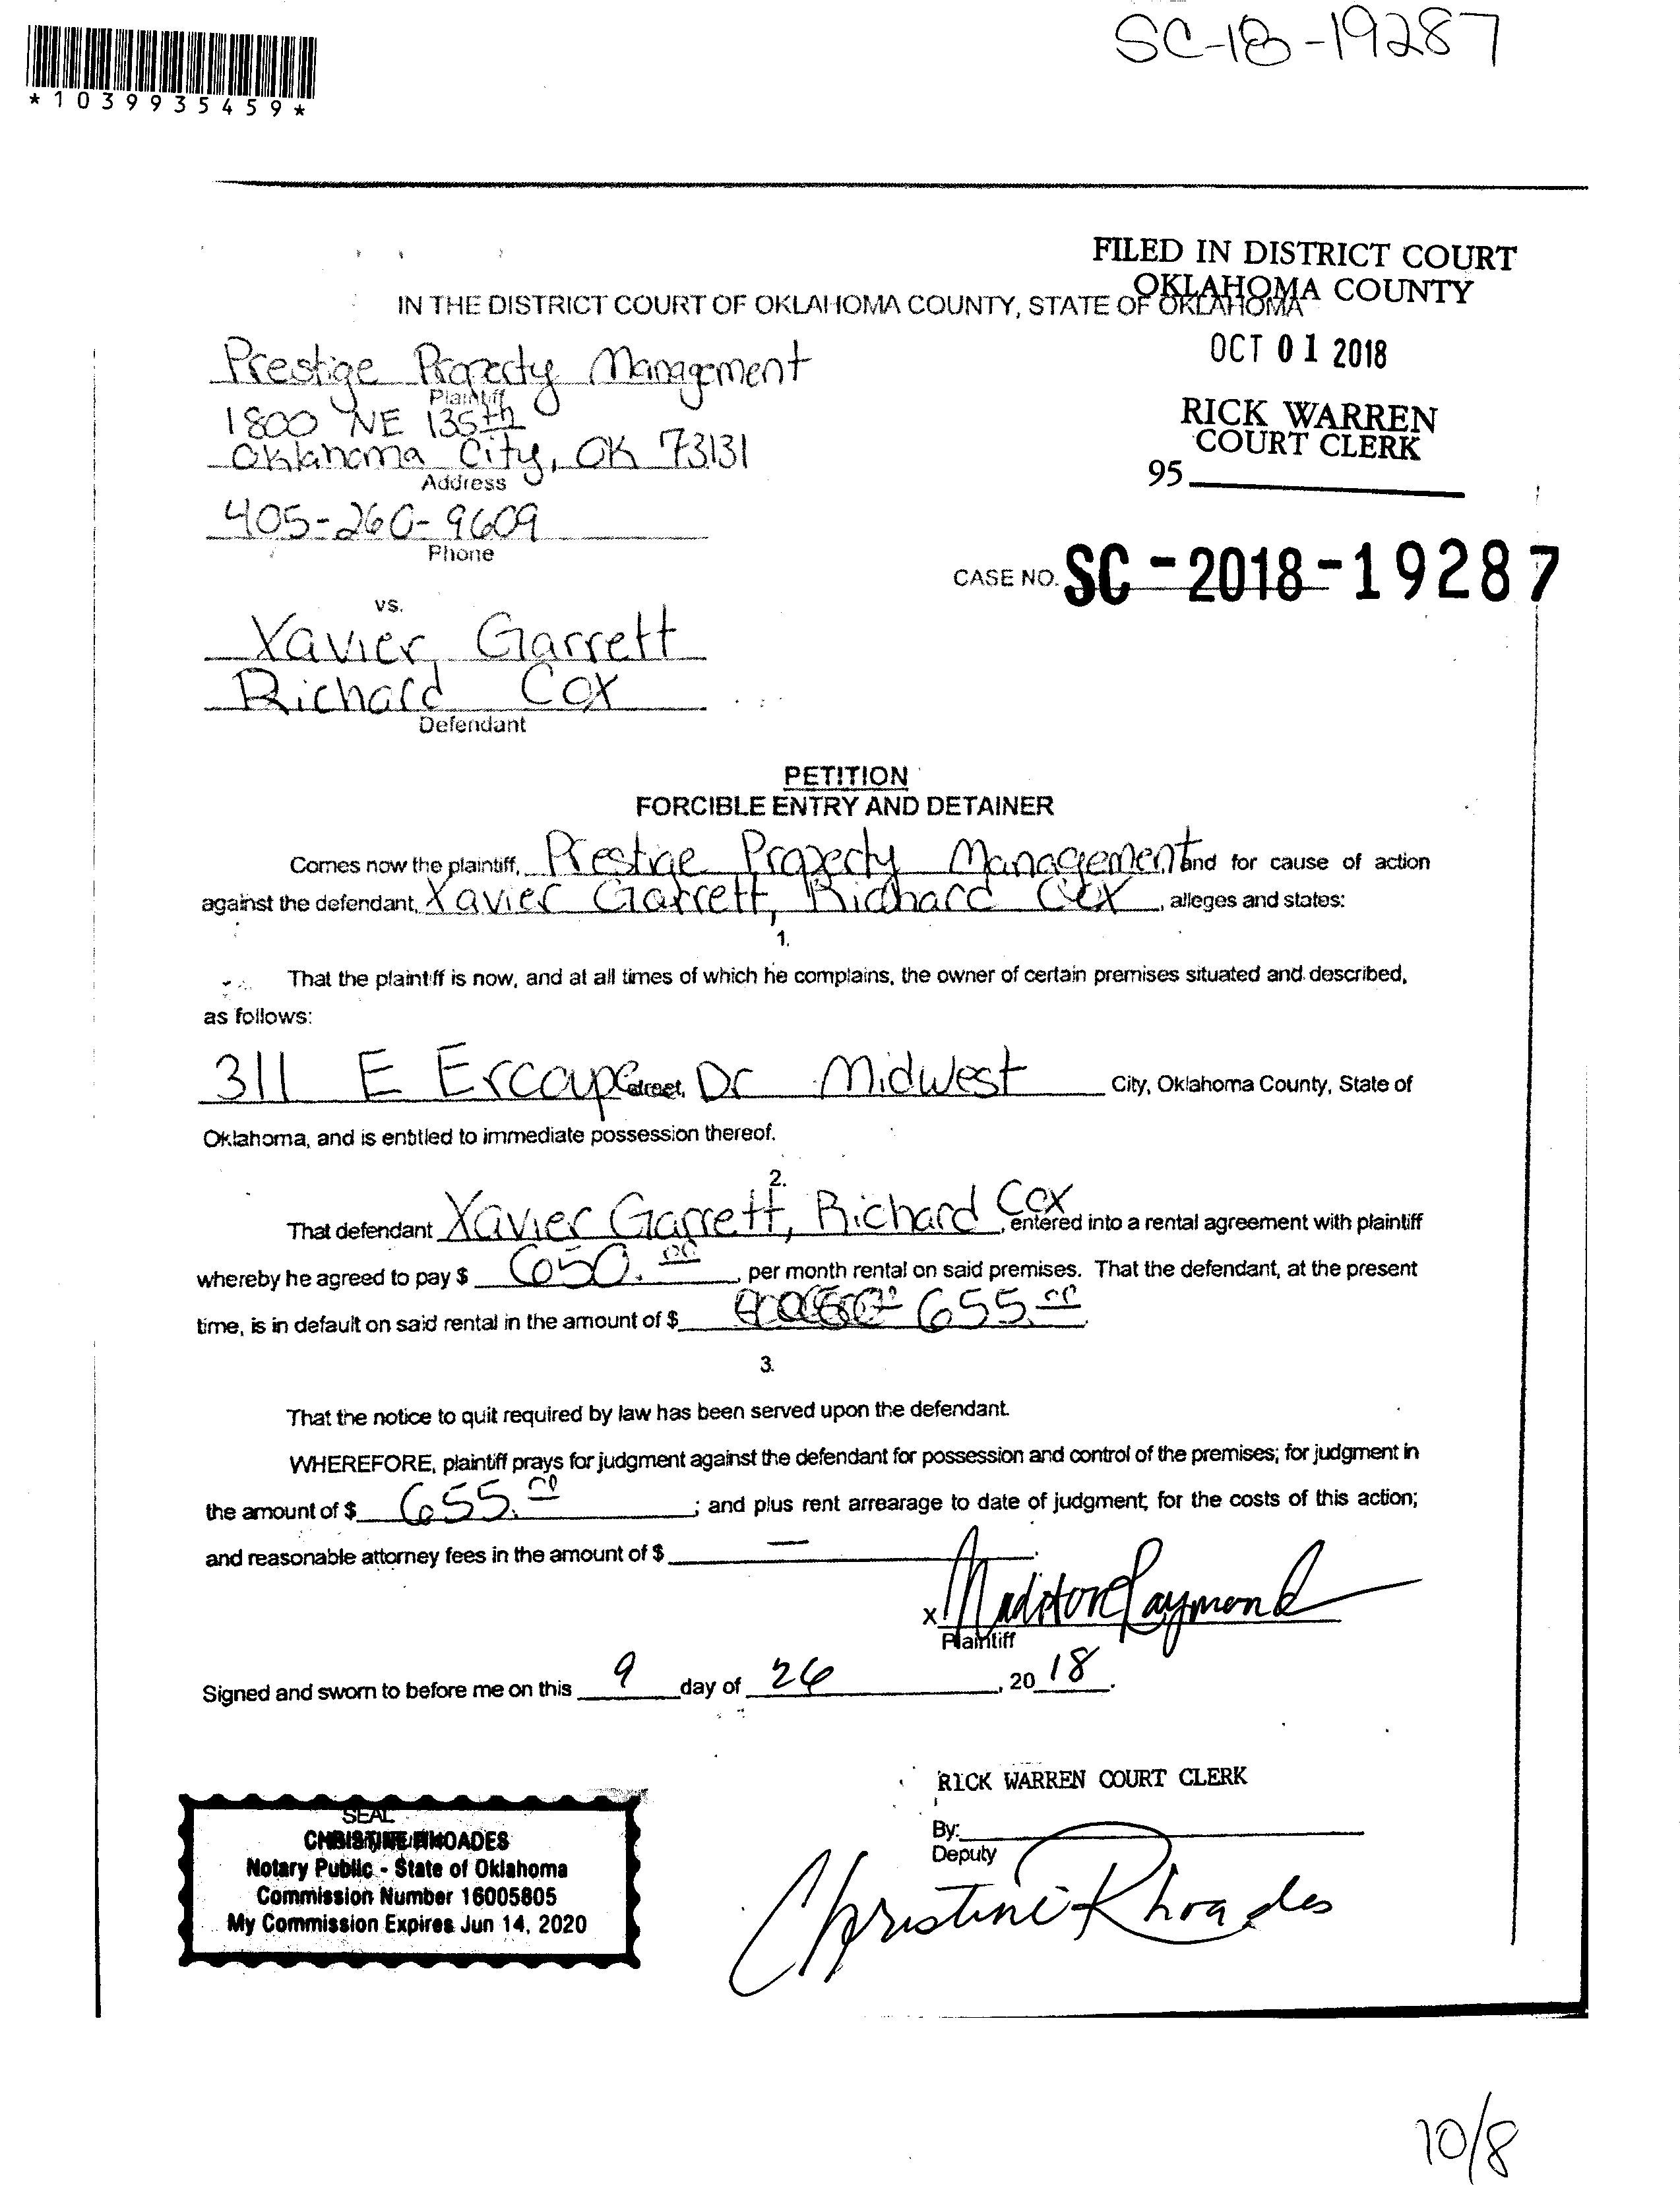 SC-18-19287
*1039935459*
FILED IN DISTRICT COURT
OKLAHOMA COUNTY
IN THE DISTRICT COURT OF OKLAHOMA COUNTY, STATE OF OKLAHOMA
OCT 01 2018
RICK WARREN
COURT CLERK
95
Prestige Property Management
Plaintiff
1800 NE 135th
Oklahoma City, OK 73131
Address
405-260-9609
Phone
CASE NO. SC-2018-19287
vs.
Xavier Garrett
Richard Cox
Defendant
PETITION
FORCIBLE ENTRY AND DETAINER
Comes now the plaintiff, Prestige Property Management and for cause of action
against the defendant, Xavier Garrett, Richard Cox, alleges and states:
1.
That the plaintiff is now, and at all times of which he complains, the owner of certain premises situated and described,
as follows:
311 E Ercoupe street, Dr Midwest City, Oklahoma County, State of
Oklahoma, and is entitled to immediate possession thereof.
2.
That defendant Xavier Garrett, Richard Cox, entered into a rental agreement with plaintiff
whereby he agreed to pay $ 650.00, per month rental on said premises. That the defendant, at the present
time, is in default on said rental in the amount of $ 655.00
3.
That the notice to quit required by law has been served upon the defendant.
WHEREFORE, plaintiff prays for judgment against the defendant for possession and control of the premises; for judgment in
the amount of $ 655.00; and plus rent arrearage to date of judgment; for the costs of this action;
and reasonable attorney fees in the amount of $ —.
x Madison Raymond
Plaintiff
Signed and sworn to before me on this 9 day of 26, 2018.
RICK WARREN COURT CLERK
By:
Deputy
Christine Rhoades
SEAL
CHRISTINE RHOADES
Notary Public - State of Oklahoma
Commission Number 16005805
My Commission Expires Jun 14, 2020
10/8